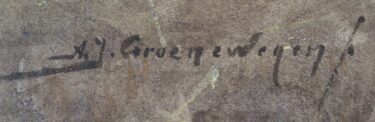 A.J. Groenewegen f.